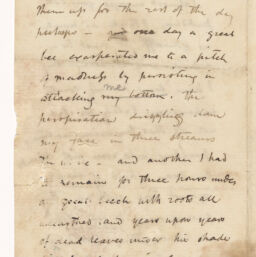 them up for the rest of the day
perhaps — one day a great
bee exasperated me to a pitch
of madness by persisting in
attacking me
my bottom. The
perspiration dripping down
my face in three streams
and another I had
to remain for three hours under
a great beech with roots all
unearthed and years upon years
of dead leaves under his shade